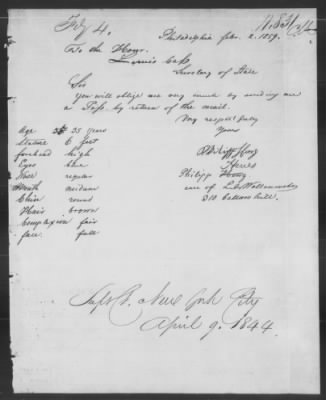 Feby 4.
Philadelphia feb. 2. 1859.
To the Honr.
Lewis Cass
Secretary of State
Sir
You will oblige me very much by sending me
a Pass by return of the mail.
Very respectfully
Yours
Age 35 years
Stature 6 foot
forehead high
Eyes blue
Nose regular
Mouth medium
Chin round
Hair brown
Complexion fair
face full
Philipp
care of
310
New York City
April 9. 1844.